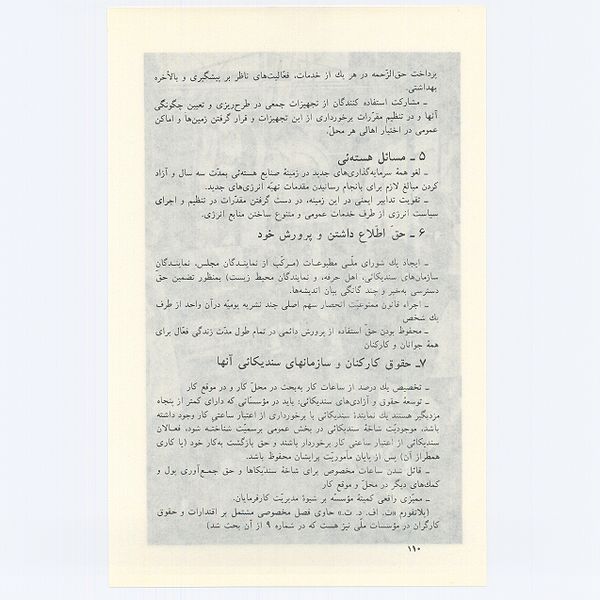 پرداخت حق‌الزّحمه در هر یك از خدمات، فعّالیت‌های ناظر بر پیشگیری و بالأخره
بهداشتی.
ـ مشاركت استفاده كنندگان از تجهیزات جمعی در طرح‌ریزی و تعیین چگونگی
آنها و در تنظیم مقرّرات برخورداری از این تجهیزات و قرار گرفتن زمین‌ها و اماكن
عمومی در اختیار اهالی هر محلّ.
۵ ـ مسائل هسته‌ئی
ـ لغو همهٔ سرمایه‌گذاری‌های جدید در زمینهٔ صنایع هسته‌ئی بمدّت سه سال و آزاد
كردن مبالغ لازم برای بانجام رسانیدن مقدمات تهیّه انرژی‌های جدید.
ـ تقویت تدابیر ایمنی در این زمینه، در دست گرفتن مقدّرات در تنظیم و اجرای
سیاست انرژی از طرف خدمات عمومی و متنوع ساختن منابع انرژی.
۶ ـ حقّ اطلاع داشتن و پرورش خود
ـ ایجاد یك شورای ملّی مطبوعات (مركّب از نمایندگان مجلس، نمایندگان
سازمان‌های سندیكائی، اهل حرفه، و نمایندگان محیط زیست) بمنظور تضمین حقّ
دسترسی به‌خبر و چند گانگی بیان اندیشه‌ها.
ـ اجراء قانون ممنوعیّت انحصار سهم اصلی چند نشریه یومیّه درآن واحد از طرف
یك شخص
ـ محفوظ بودن حقّ استفاده از پرورش دائمی در تمام طول مدّت زندگی فعّال برای
همهٔ جوانان و كاركنان
۷ـ حقوق كاركنان و سازمانهای سندیكائی آنها
ـ تخصیص یك درصد از ساعات كار به‌بحث در محلّ كار و در موقع كار
ـ توسعهٔ حقوق و آزادی‌های سندیكائی: باید در مؤسّساتی كه دارای كمتر از پنجاه
مزدبگیر هستند یك نمایندهٔ سندیكائی با برخورداری از اعتبار ساعتی كار وجود داشته
باشد، موجودیّت شاخهٔ سندیكائی در بخش عمومی برسمیّت شناخته شود، فعّالان
سندیكائی از اعتبار ساعتی كار برخوردار باشند و حق بازگشت به‌كار خود (یا كاری
همطراز آن) پس از پایان مأموریّت برایشان محفوظ باشد.
ـ قائل شدن ساعات مخصوص برای شاخهٔ سندیكاها و حق جمع‌آوری پول و
كمك‌های دیگر در محلّ و موقع كار
ـ ممیّزی رافعی كمیتهٔ مؤسّسه بر شیوهٔ مدیریّت كارفرمایان.
(پلاتفورم «ث. اف. د. ت.» حاوی فصل مخصوصی مشتمل بر اقتدارات و حقوق
كارگران در مؤسسات ملّی نیز هست كه در شماره ۹ از آن بحث شد)
۱۱۰